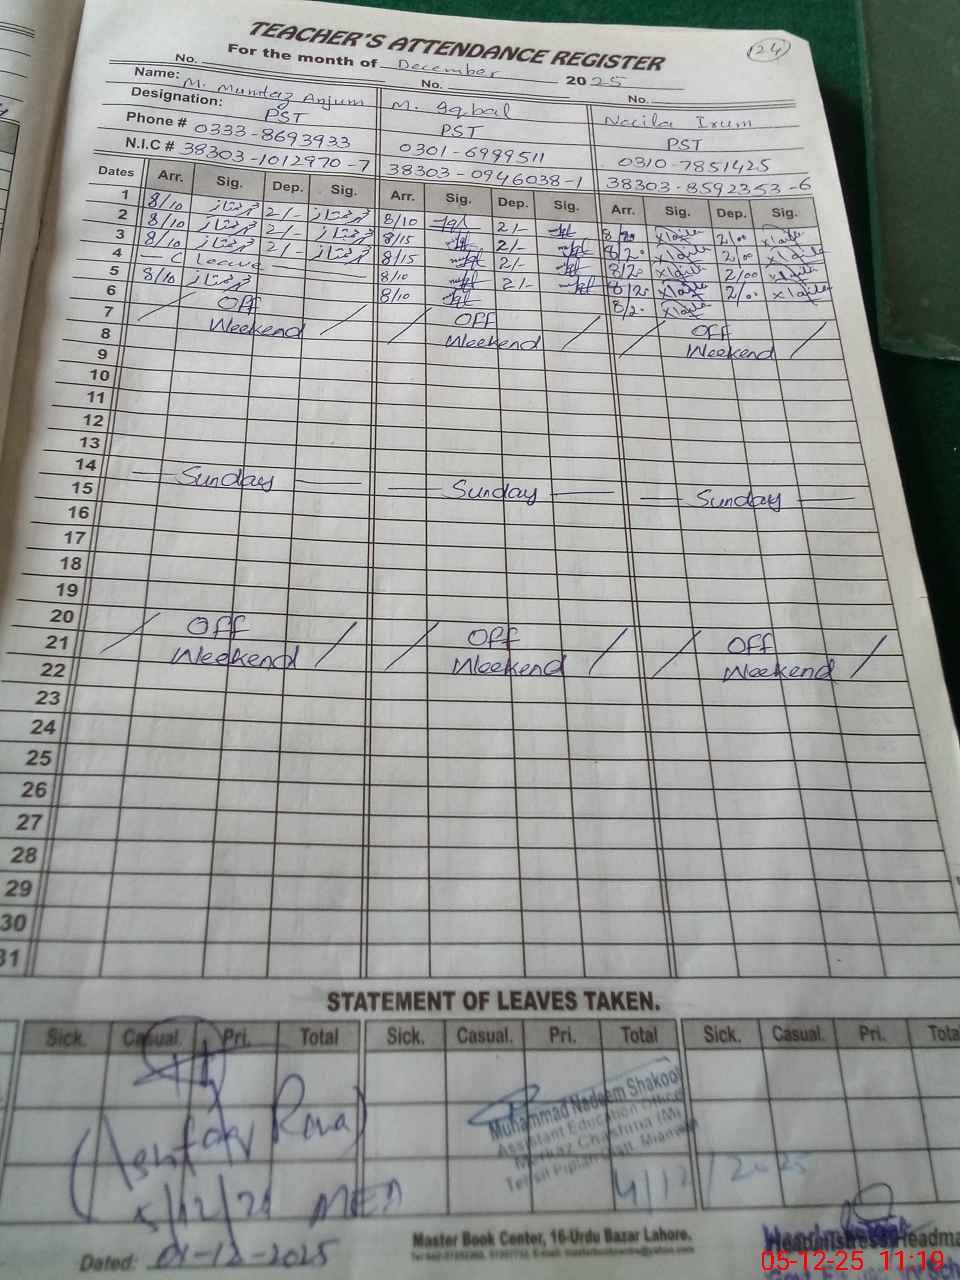 TEACHER'S ATTENDANCE REGISTER
24
For the month of December 2025
No. No. No.
Name: M. Mumtaz Anjum M. Iqbal Naila Irum
Designation: PST PST PST
Phone # 0333-8693933 0301-6999511 0310-7851425
N.I.C # 38303-1012970-7 38303-0946038-1 38303-8592353-6
Dates Arr. Sig. Dep. Sig. Arr. Sig. Dep. Sig. Arr. Sig. Dep. Sig.
1 8/10 ممتاز 2/- ممتاز 8/10 2/- 8/20 2/00
2 8/10 ممتاز 2/- ممتاز 8/15 2/- 8/20 2/00
3 8/10 ممتاز 2/- ممتاز 8/15 2/- 8/20 2/00
4 — C Leave — 8/10 2/- 8/20 2/00
5 8/10 ممتاز 8/10 8/20
6 Off Off Off
7 Weekend Weekend Weekend
8
9
10
11
12
13
14 — Sunday — — Sunday — — Sunday —
15
16
17
18
19
20 Off Off Off
21 Weekend Weekend Weekend
22
23
24
25
26
27
28
29
30
31
STATEMENT OF LEAVES TAKEN.
Sick. Casual. Pri. Total Sick. Casual. Pri. Total Sick. Casual. Pri. Total
Muhammad Nadeem Shakool
Assistant Education Office
Markaz Chashma (M)
Tehsil Piplan
4/12/2025
(Ashfaq Rana)
5/12/25 MEA
Master Book Center, 16-Urdu Bazar Lahore.
Dated: 01-12-2025
Headmistress/Headma
05-12-25 11:19